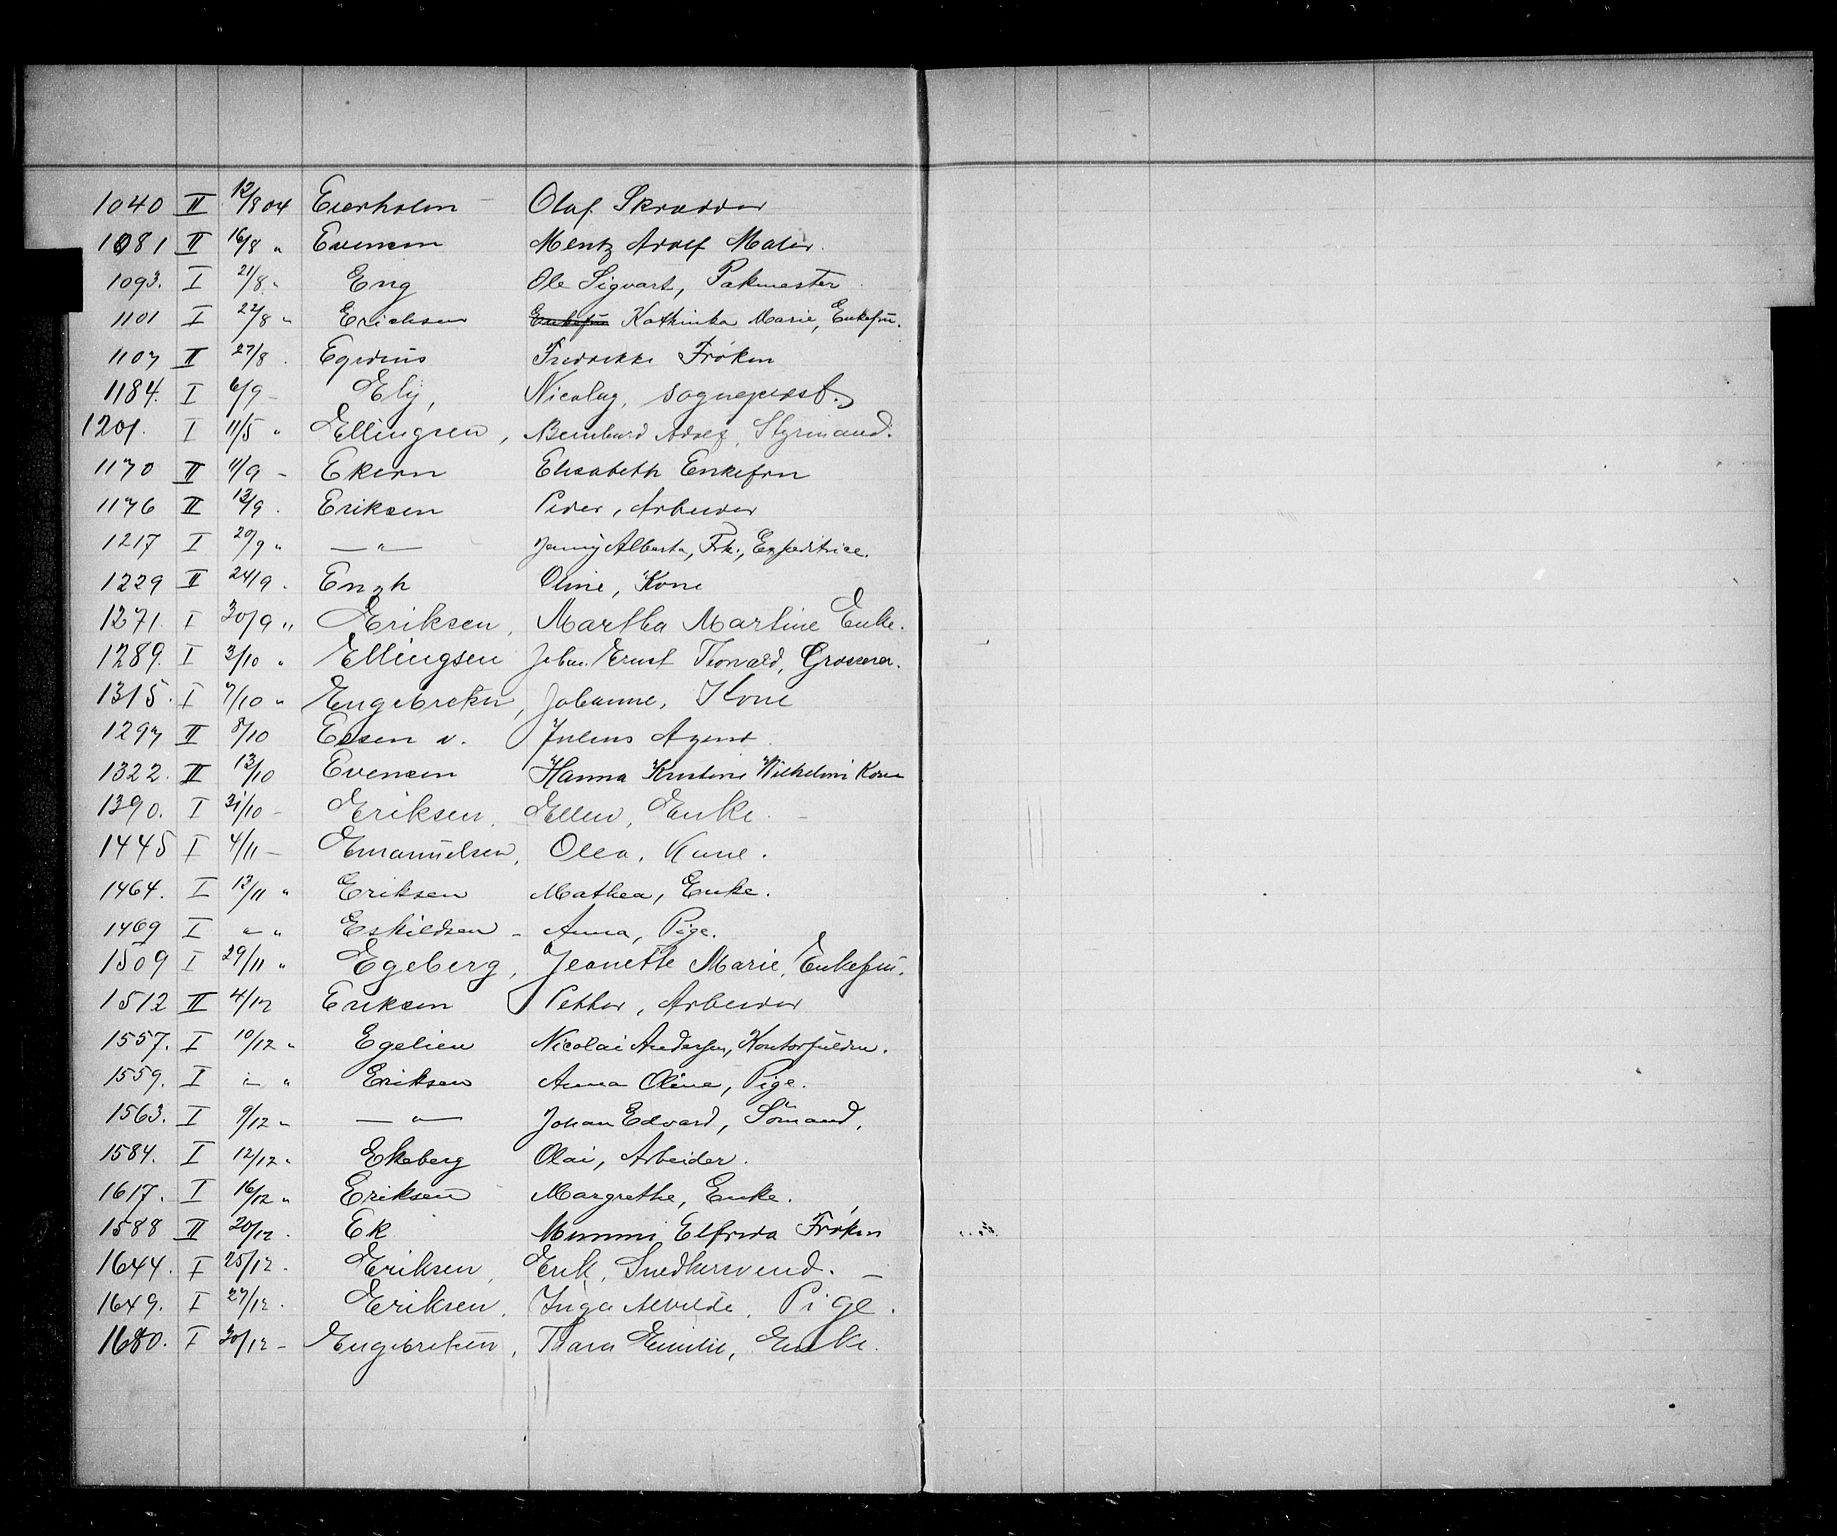 1040 II 12/8 04 Eierholm Olaf Skrædder
1081 II 16/8 " Evensen Mentz Adolf Maler.
1093. I 21/8 " Eng Ole Sigvart, Pakmester
1101 I 22/8 " Erichsen Enkefru Kathinka Marie, Enkefru.
1107 II 27/8 . Egidius Fredrikke Frøken
1184. I 6/9 - Ely, Nicolay, sogneprest.
1201. I 11/5 " Ellingsen, Bernhard Adolf, Styrmand.
1170 II 11/9 - Ekern Elisabeth Enkefru
1176 II 13/9 . Eriksen Peder, Arbeider
1217 I 20/9 " — " — Jenny Alberta, Frk., Expeditrice.
1229 II 24/9 . Engh Oline, Kone
1271. I 30/9 " Eriksen, Martha Martine Enke.
1289. I 3/10 " Ellingsen Johan Ernst Thorvald, Grosserer.
1315. I 7/10 " Engebretsen, Johanne, Kone
1297 II 8/10 Essen v. Julius Agent
1322. II 13/10 Evensen Hanna Kristine Wilhelmi Kone
1390. I 31/10 - Eriksen, Ellen, Enke. -
1445 I 4/11 - Emanuelsen, Olea, Kone.
1464. I 13/11 " Eriksen Mathea, Enke.
1469 I " " Eskildsen - Anna, Pige.
1509 I 29/11 " Egeberg, Jeanette Marie, Enkefru.
1512 II 4/12 Eriksen Petter, Arbeider
1557. I 10/12 " Egelien Nicolai Andersen, Kontorfuldm.
1559. I " " Eriksen Anna Oline, Pige.
1563. I 9/12 " — " — Johan Edvard, Sömand.
1584. I 12/12 " Ekeberg Olai, Arbeider.
1617. I 16/12 " Eriksen Margrethe, Enke.
1588 II 20/12 . Ek Mimmi Elfrida Frøken
1644. I 25/12 - Eriksen, Erik, Snedkersvend. -
1649. I 27/12 . Eriksen, Inga Alvilde, Pige.
1680. I 30/12 - Engebretsen, Thara Emilie, Enke.